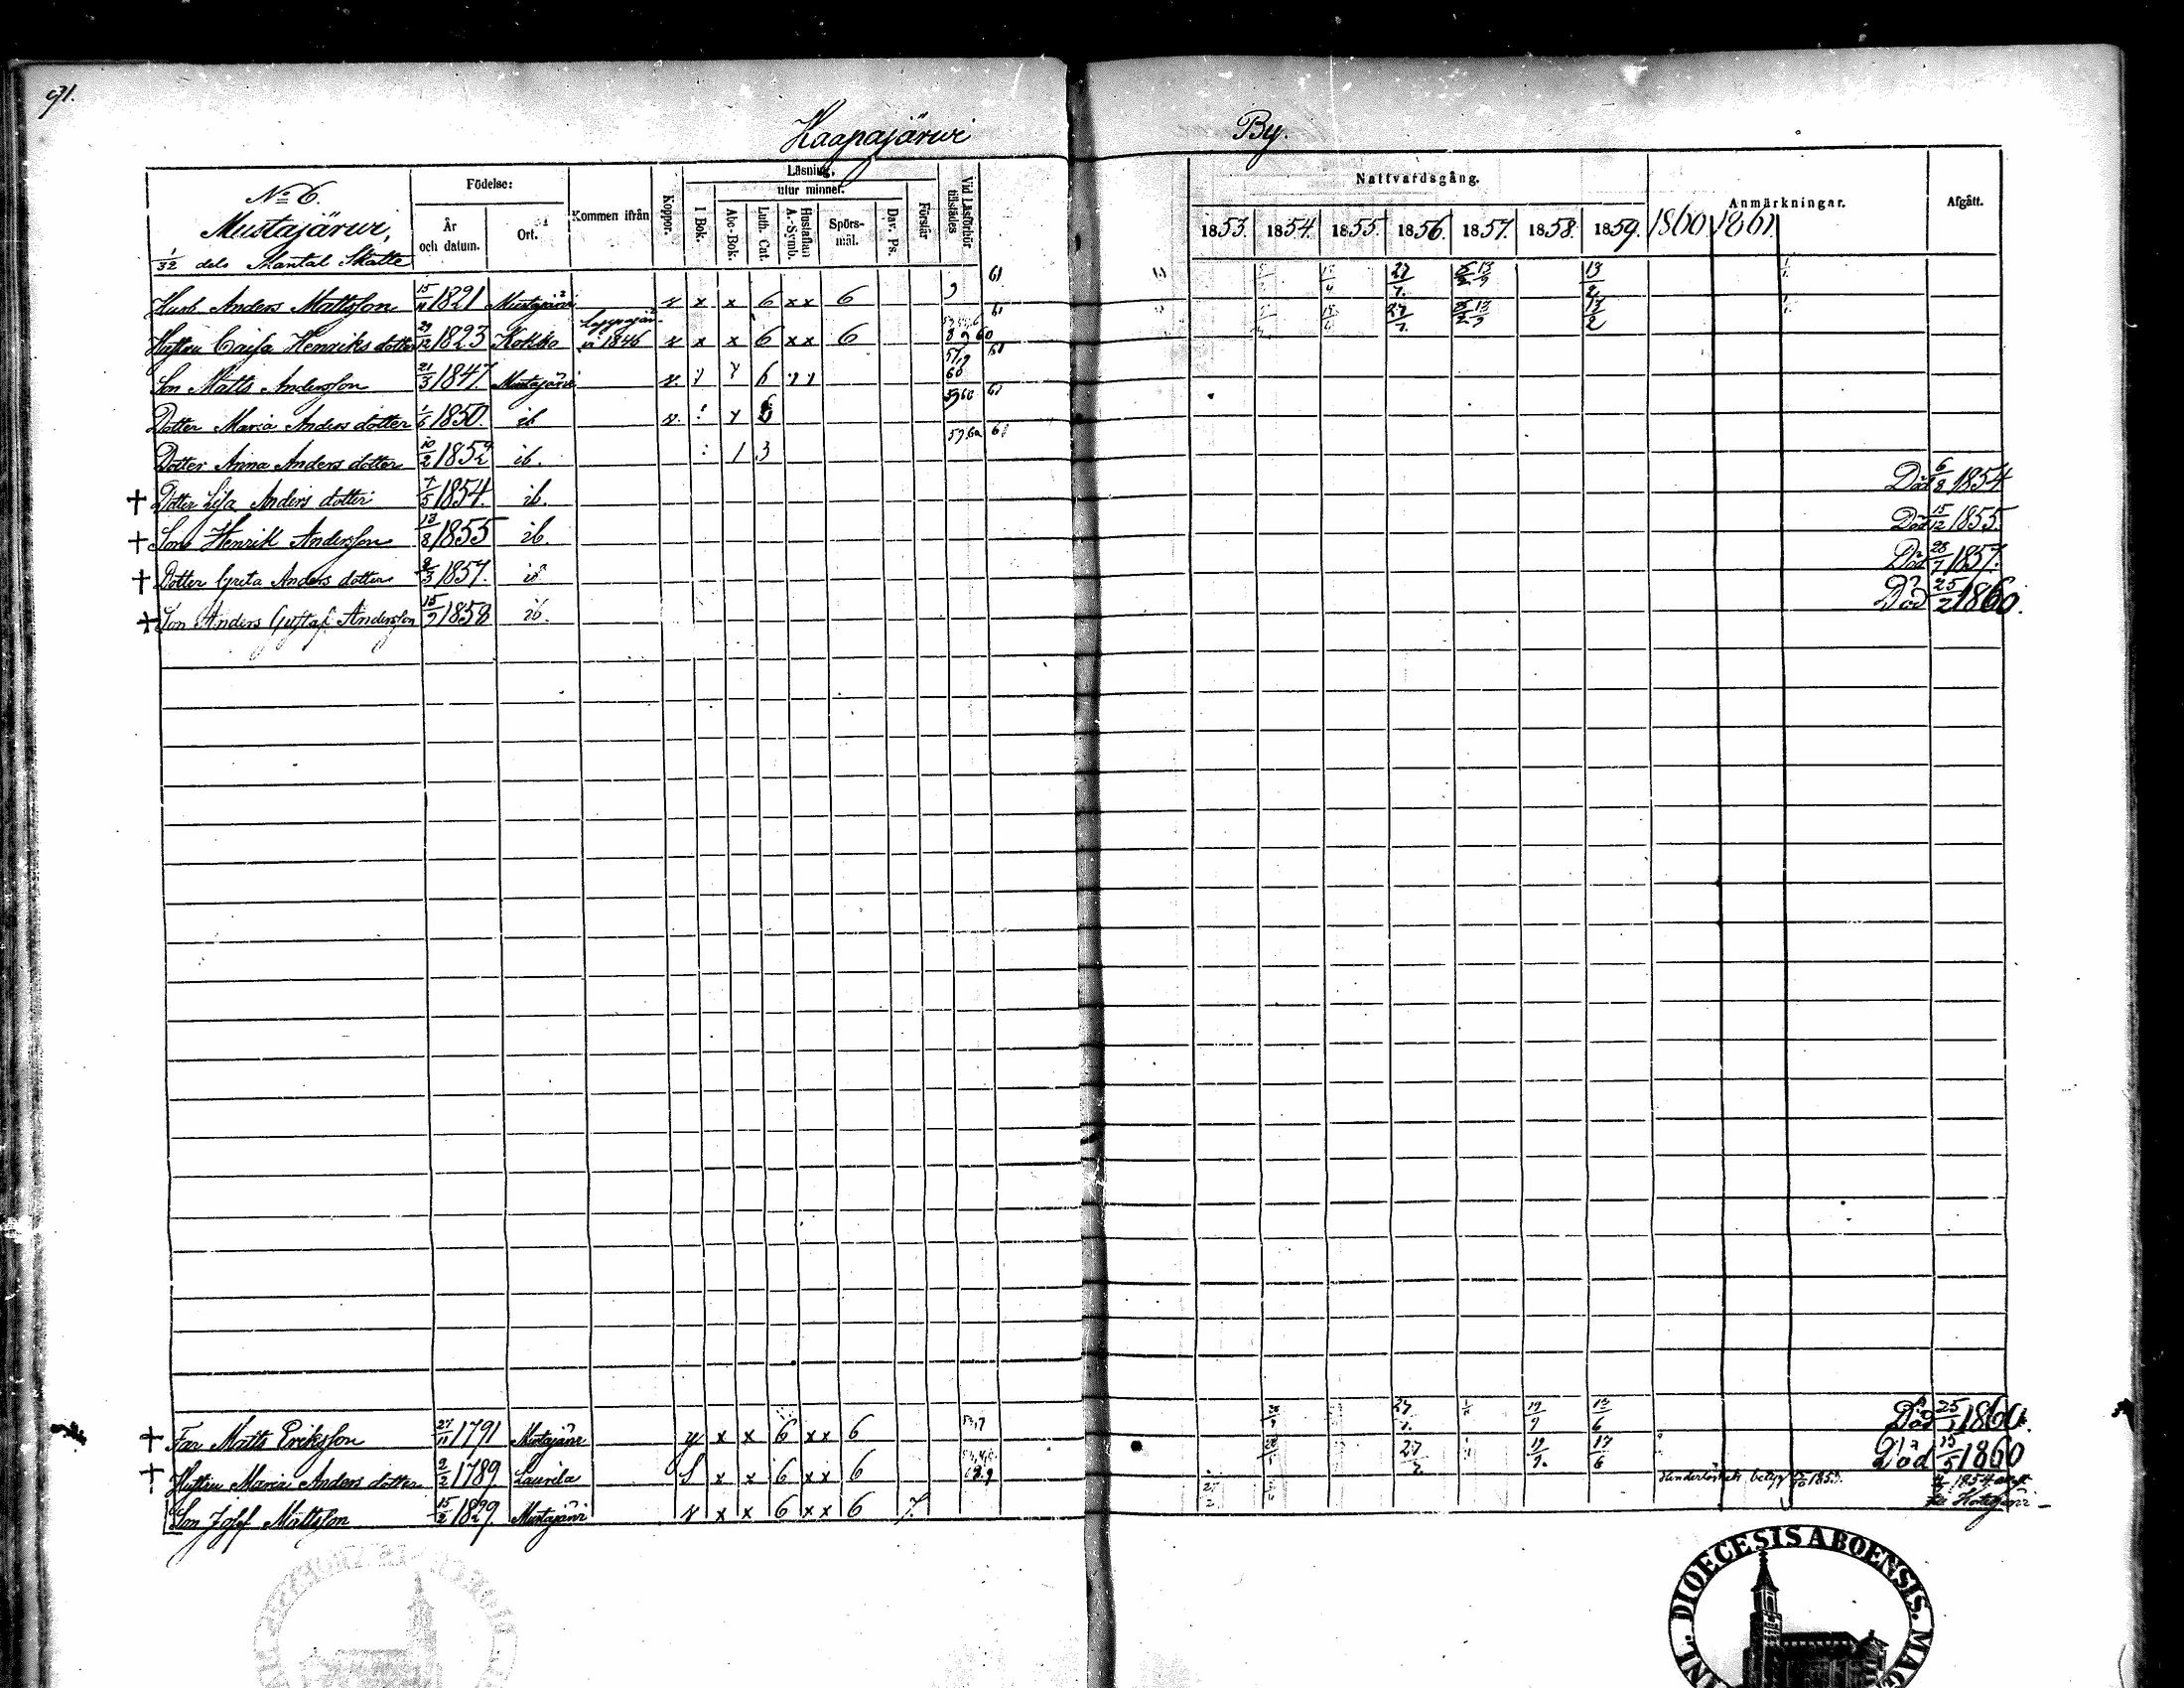 91.
Haapajärwi By.
No 6.
Mustajärwi,
1/32 dels Mantal Skatte
Födelse:
År och datum.
Ort.
Kommen ifrån
Koppor.
Läsning,
I Bok.
utur minnet.
Abc-Bok.
Luth. Cat.
Hustaflan A.-Symb.
Spörs-mål.
Dav. Ps.
Förstår
Vid Läsförhör tillstädes
Nattvardsgång.
1853. 1854. 1855. 1856. 1857. 1858. 1859. 1860 1861.
Anmärkningar.
Afgått.
Husb Anders Mattsson 15/11 1821 Mustajärvi x x x 6 x x 6 9 61 27/7 13/9 13/2
Hustru Caisa Henriks dotter 29/12 1823 Kokko 1846 x x x 6 x x 6 8 9 60 61 27/7 13/9 13/2
Son Matts Andersson 21/3 1847. Mustajärvi 57,9 60 61
Dotter Maria Anders dotter 1/6 1850. ib 59 60 61
Dotter Anna Anders dotter 10/2 1852 ib. 1 3 59.60 61
† Dotter Lisa Anders dotter 7/5 1854. ib. Död 6/8 1854
† Son Henrik Andersson 13/8 1855 ib. Död 15/12 1855.
† Dotter Greta Anders dotter 2/3 1857. ib Död 28/7 1857.
† Son Anders Gustaf Andersson 15/9 1858 ib. Död 25/2 1860.
† Far Matts Eriksson 27/11 1791 Mustajärvi y x x 6 x x 6 53,7 27/7 19/9 13/6 Död 25/1 1860.
† Hustru Maria Anders dotter 2/2 1789. Laurila x x 6 x x 6 27/7 19/9 13/6 Död 15/5 1860
Son Josef Mattsson 15/2 1829. Mustajärvi v x x 6 x x 6 7. Hinderlöshets betyg 1853. 1854
DIOECESIS ABOENSIS.